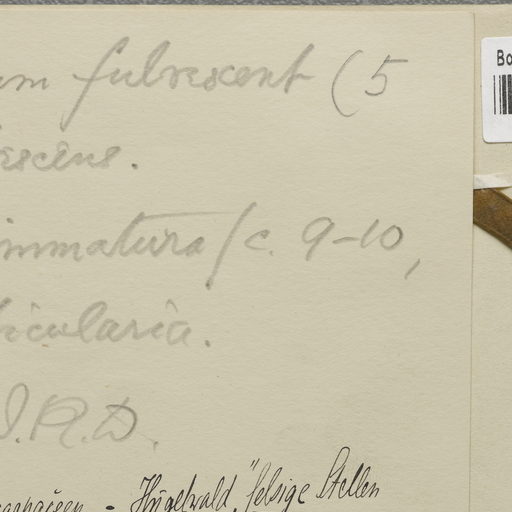 um fulvescent (5
escens.
immatura / c. 9-10,
bicularia.
J.R.D.
Hügelwald, felsige Stellen
Bo